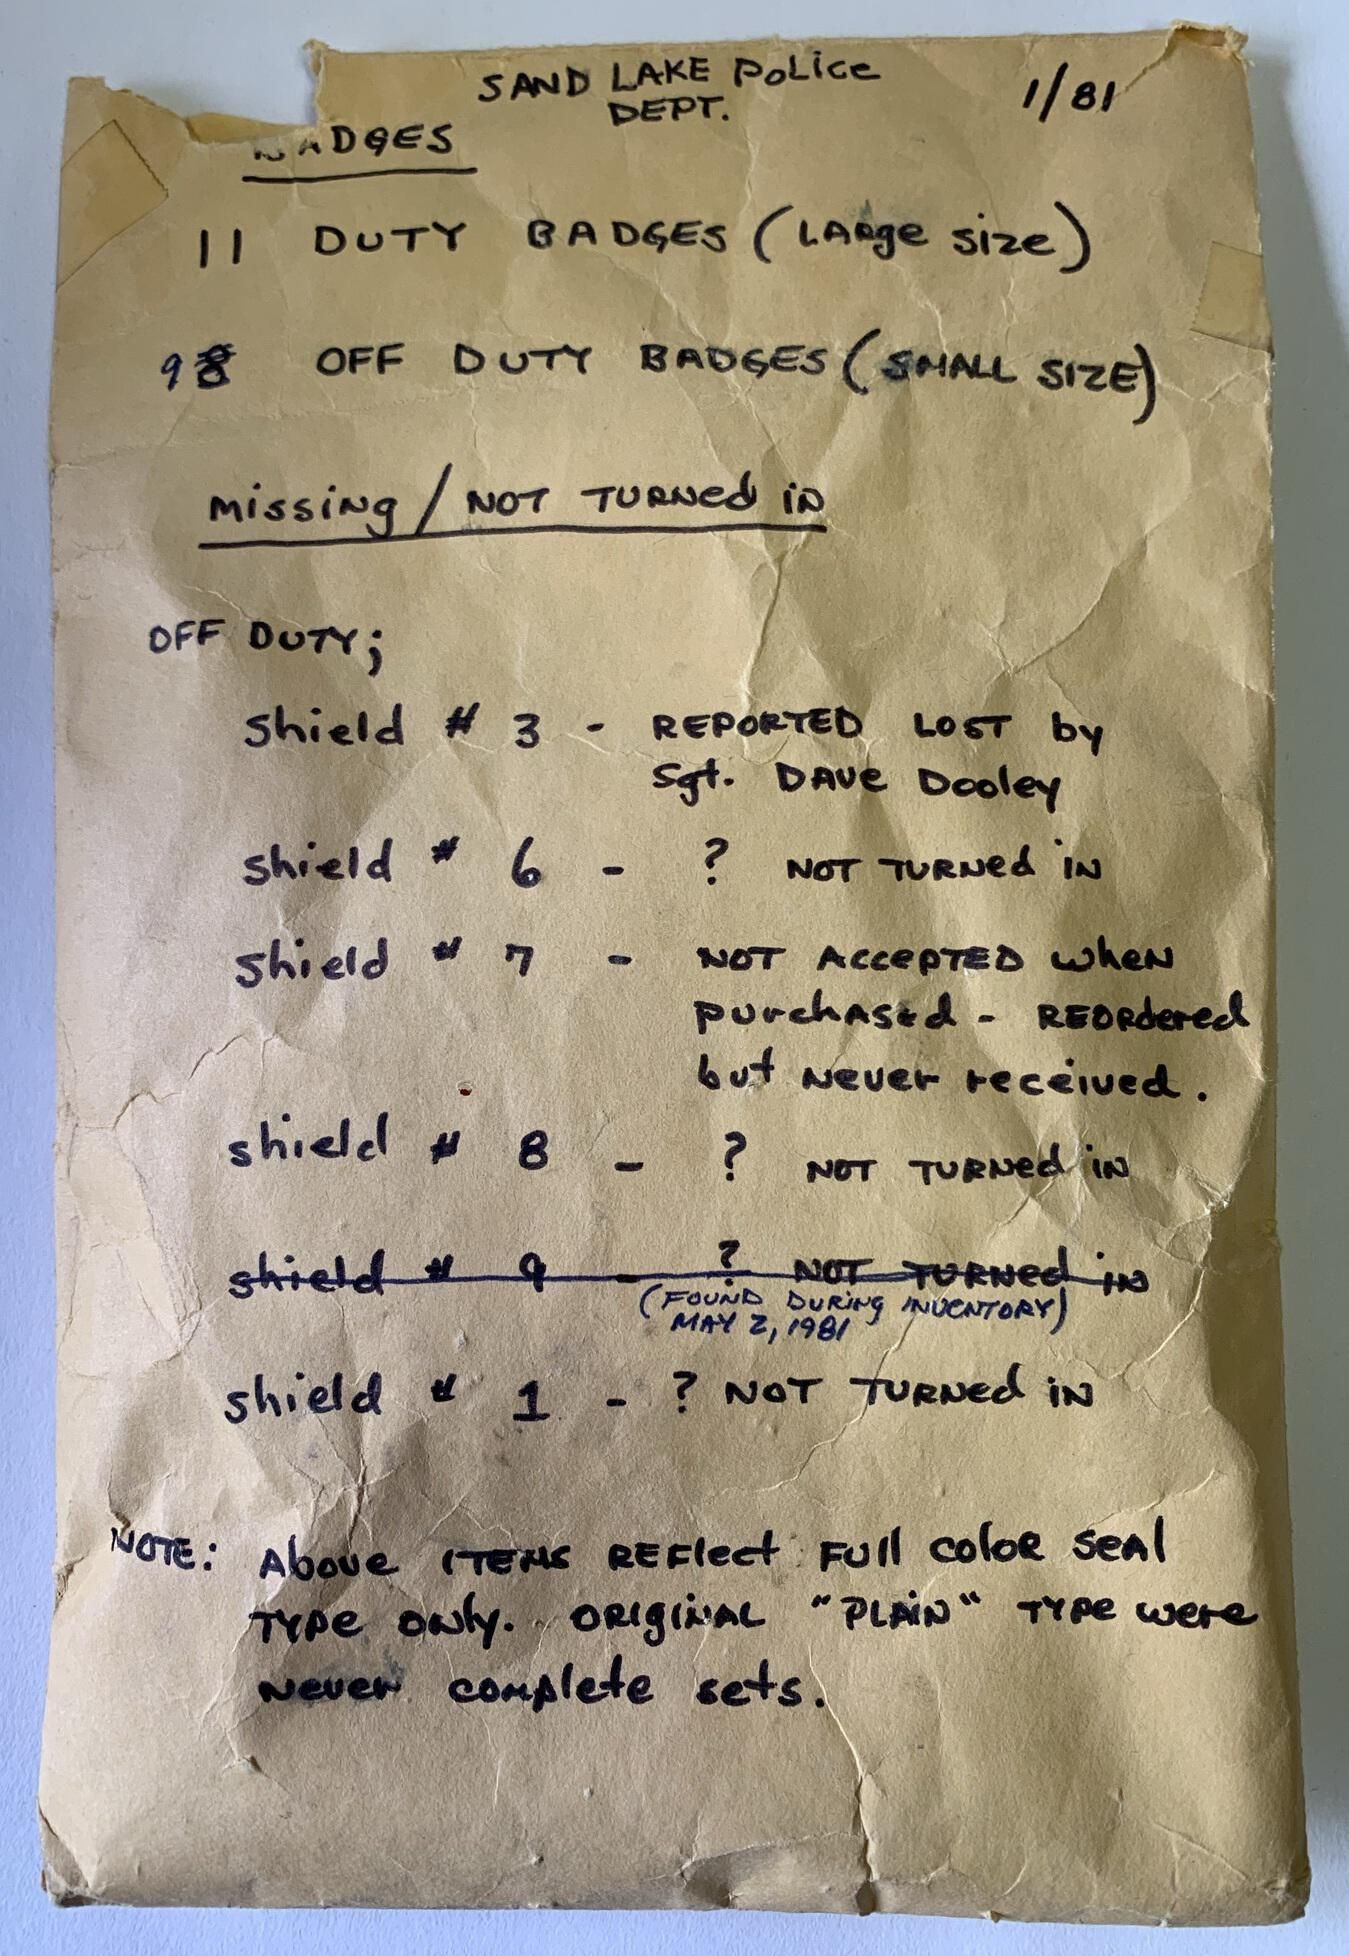 SAND LAKE POLICE
DEPT.
1/81
BADGES
11 DUTY BADGES (LARge size)
9 8 OFF DUTY BADGES (SMALL SIZE)
missing / NOT TURNed iN
OFF DUTY;
shield # 3 - REPORTED LOST by
Sgt. DAVe Dooley
shield # 6 - ? NOT TURNed iN
shield # 7 - NOT AccepTED wheN
purchAsed - REORdered
but Never received.
shield # 8 - ? NOT TURNed iN
shield # 9 - ? NOT TURNed iN
(FOUND DURING INVENTORY)
MAY 2, 1981
shield # 1 - ? NOT TURNed iN
NOTE: Above ITEMS REFlect Full coloR seAl
TYPe ONly. ORIgINAL "PLAiN" TYPe were
Never complete sets.